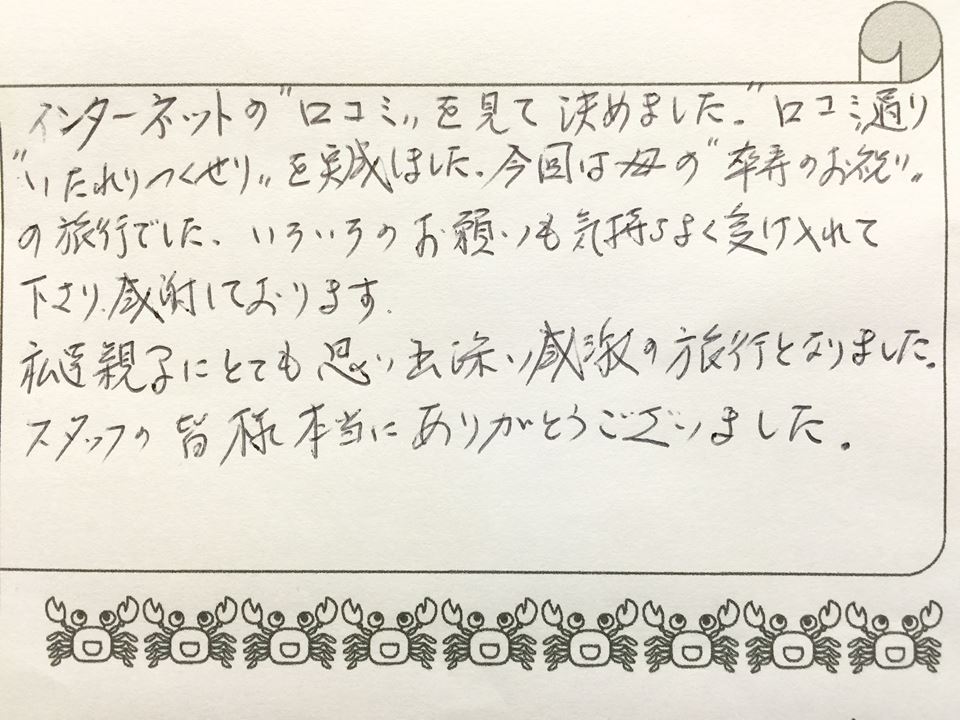 インターネットの"口コミ"を見て決めました。"口コミ通り
"いたれりつくせり"を実感しました。今回は母の"卒寿のお祝い"
の旅行でした。いろいろのお願いも気持ちよく受け入れて
下さり、感謝しております。
私達親子にとても思い出深い感激の旅行となりました。
スタッフの皆様本当にありがとうございました。